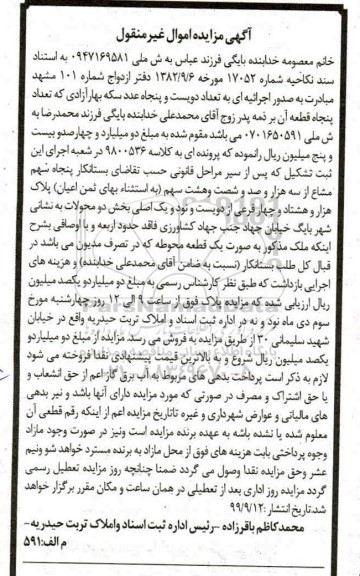 آگهی مزایده اموال غیر منقول
خانم معصومه خدابنده بایگی فرزند عباس به ش ملی ۰۹۴۷۱۶۹۵۸۱ به استناد
سند نکاحیه شماره ۱۷۰۵۲ مورخه ۱۳۸۲/۹/۶ دفتر ازدواج شماره ۱۰۱ مشهد
مبادرت به صدور اجرائیه ای به تعداد دویست و پنجاه عدد سکه بهار آزادی که تعداد
پنجاه قطعه آن بر ذمه پدر زوج آقای محمدعلی خدابنده بایگی فرزند محمدرضا به
ش ملی ۰۷۰۱۶۵۰۵۹۱ می باشد مقوم شده به مبلغ دو میلیارد و چهارصدو بیست
و پنج میلیون ریال رانموده که پرونده ای به کلاسه ۹۸۰۰۵۳۶ در شعبه اجرای این
ثبت تشکیل که پس از سیر مراحل قانونی حسب تقاضای بستانکار پنجاه سهم
مشاع از سه هزار و صد و شصت وهشت سهم (به استثناء بهای ثمن اعیان) پلاک
هزار و هشتاد و چهار فرعی از دویست و نود و یک اصلی بخش دو محولات به نشانی
شهر بایگ خیابان جهاد جنب جهاد کشاورزی فاقد حدود اربعه و با اوصافی بشرح
اینکه ملک مذکور به صورت یک قطعه محوطه که در تصرف مدیون می باشد در
قبال کل طلب بستانکار (نسبت به ضامن آقای محمدعلی خدابنده) و هزینه های
اجرایی بازداشت که طبق نظر کارشناس رسمی به مبلغ دو میلیاردو یکصد میلیون
ریال ارزیابی شده که مزایده پلاک فوق از ساعت ۹ الی ۱۲ روز چهارشنبه مورخ
سوم دی ماه نود و نه در اداره ثبت اسناد و املاک تربت حیدریه واقع در خیابان
شهید سلیمانی ۳۰ از طریق مزایده به فروش می رسد. مزایده از مبلغ دو میلیاردو
یکصد میلیون ریال شروع و به بالاترین قیمت پیشنهادی نقدا فروخته می شود
لازم به ذکر است پرداخت بدهی های مربوط به آب برق گاز اعم از حق انشعاب و
یا حق اشتراک و مصرف در صورتی که مورد مزایده دارای آنها باشد و نیز بدهی
های مالیاتی و عوارض شهرداری و غیره تاتاریخ مزایده اعم از اینکه رقم قطعی آن
معلوم شده یا نشده باشه به عهده برنده مزایده است ونیز در صورت وجود مازاد
وجوه پرداختی بابت هزینه های فوق از محل مازاد به برنده مسترد خواهد شد ونیم
عشر وحق مزایده نقدا وصول می گردد ضمنا چنانچه روز مزایده تعطیل رسمی
گردد مزایده روز اداری بعد از تعطیلی در همان ساعت و مکان مقرر برگزار خواهد
شد.تاریخ انتشار :۹۹/۹/۱۲
محمد کاظم باقرزاده –رئیس اداره ثبت اسناد واملاک تربت حیدریه-
م الف:۵۹۱